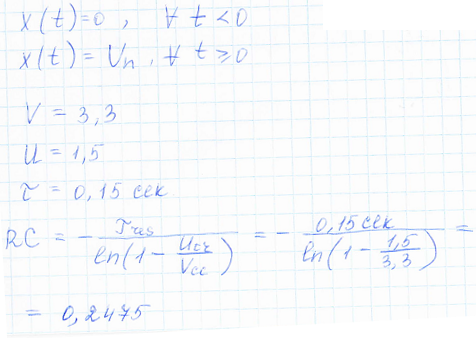 x(t)=0, ∀ t<0
x(t)=Uп, ∀ t≥0
V = 3,3
U = 1,5
τ = 0,15 сек
RC = - Tras / ln(1 - Ucr / Vcc) = - 0,15 сек / ln(1 - 1,5 / 3,3) =
= 0,2475